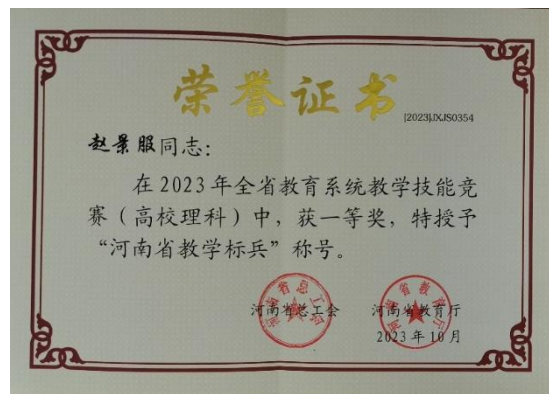 荣誉证书
[2023]JXJS0354
赵景服同志：
在2023年全省教育系统教学技能竞
赛（高校理科）中，获一等奖，特授予
“河南省教学标兵”称号。
河南省总工会 河南省教育厅
2023年10月
河南省总工会
河南省教育厅